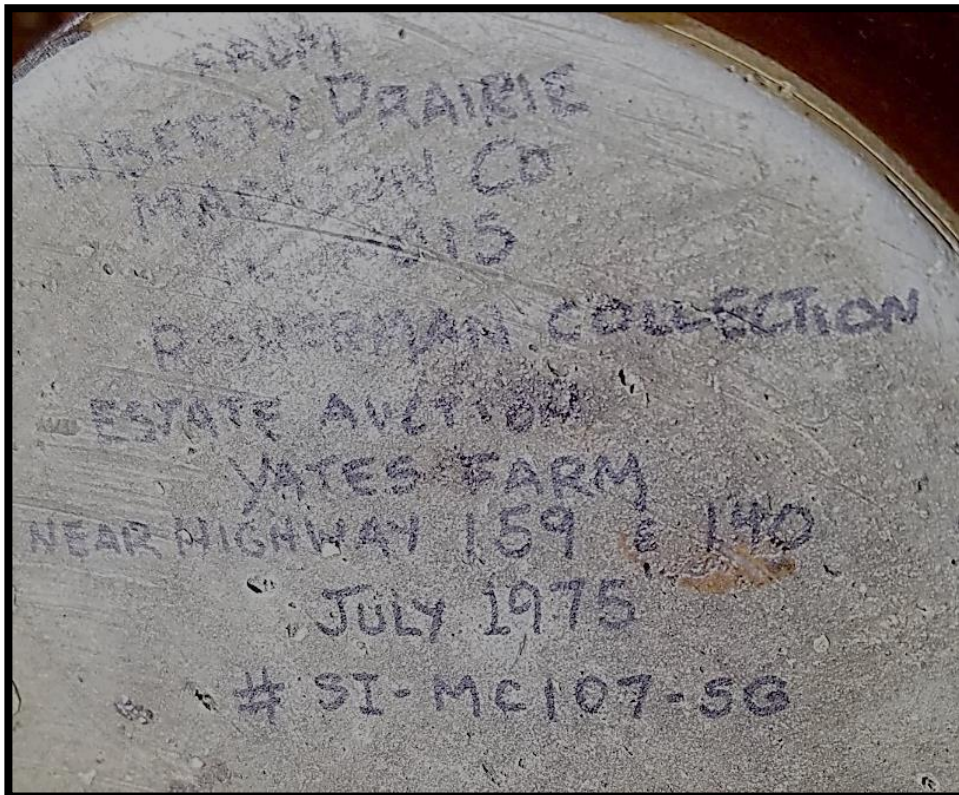 FROM
LIBERTY PRAIRIE
MADISON CO
COLLECTION
ESTATE AUCTION
YATES FARM
NEAR HIGHWAY 159 & 140
JULY 1975
# SI-MC107-SG